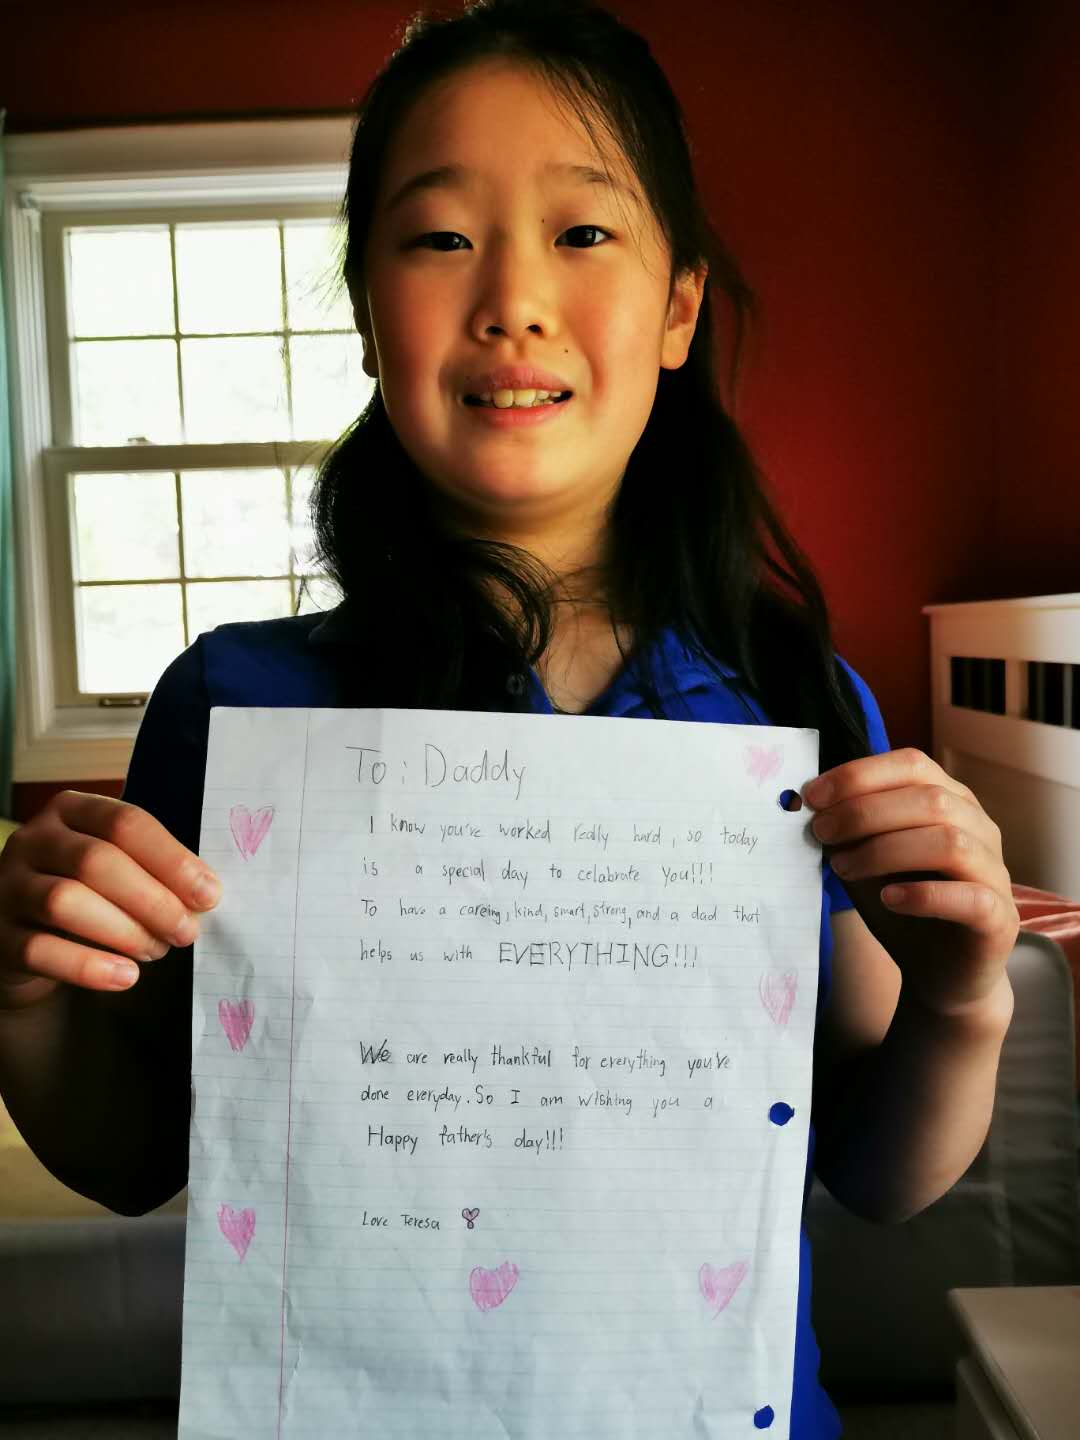 To: Daddy
I know you've worked really hard, so today
is a special day to celabrate you!!!
To have a careing, kind, smart, strong, and a dad that
helps us with EVERYTHING!!!
We are really thankful for everything you've
done everyday. So I am wishing you a
Happy father's day!!!
Love Teresa